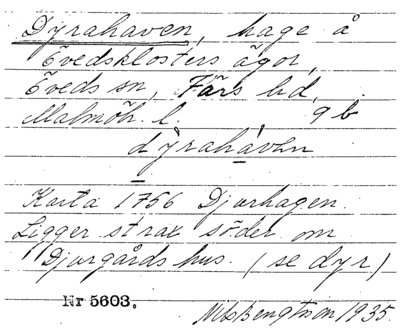 Dyrahaven, hage å
Övedsklosters ägor,
Öveds sn, Färs hd,
Malmöh. l. 9 b
dỳrahávən
Karta 1756 Djurhagen.
Ligger strax söder om
Djurgårds hus. (se dyr)
Nr 5603.
Nils Bengtsson 1935